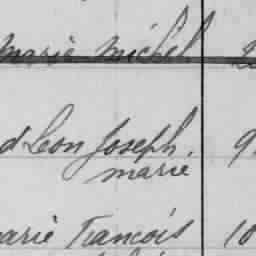 marie michel
d Leon Joseph. 9
marie
arie Francois 10